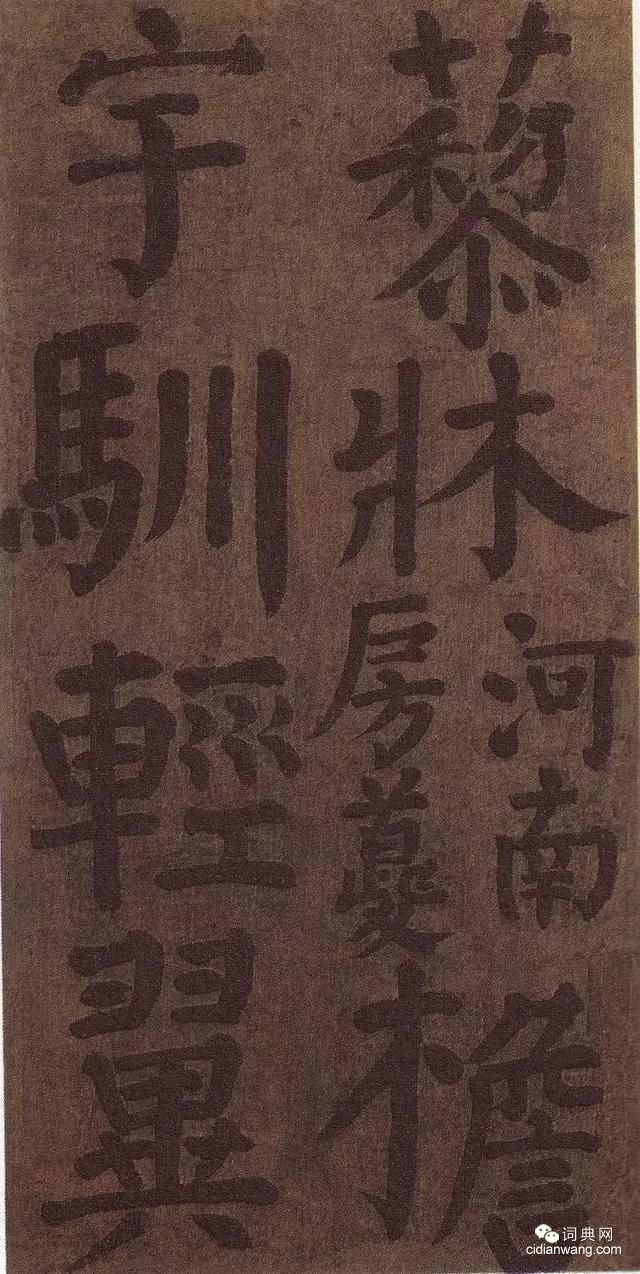 藜牀
河南
房蘷
檐
宇馴輕翼
词典网
cidianwang.com